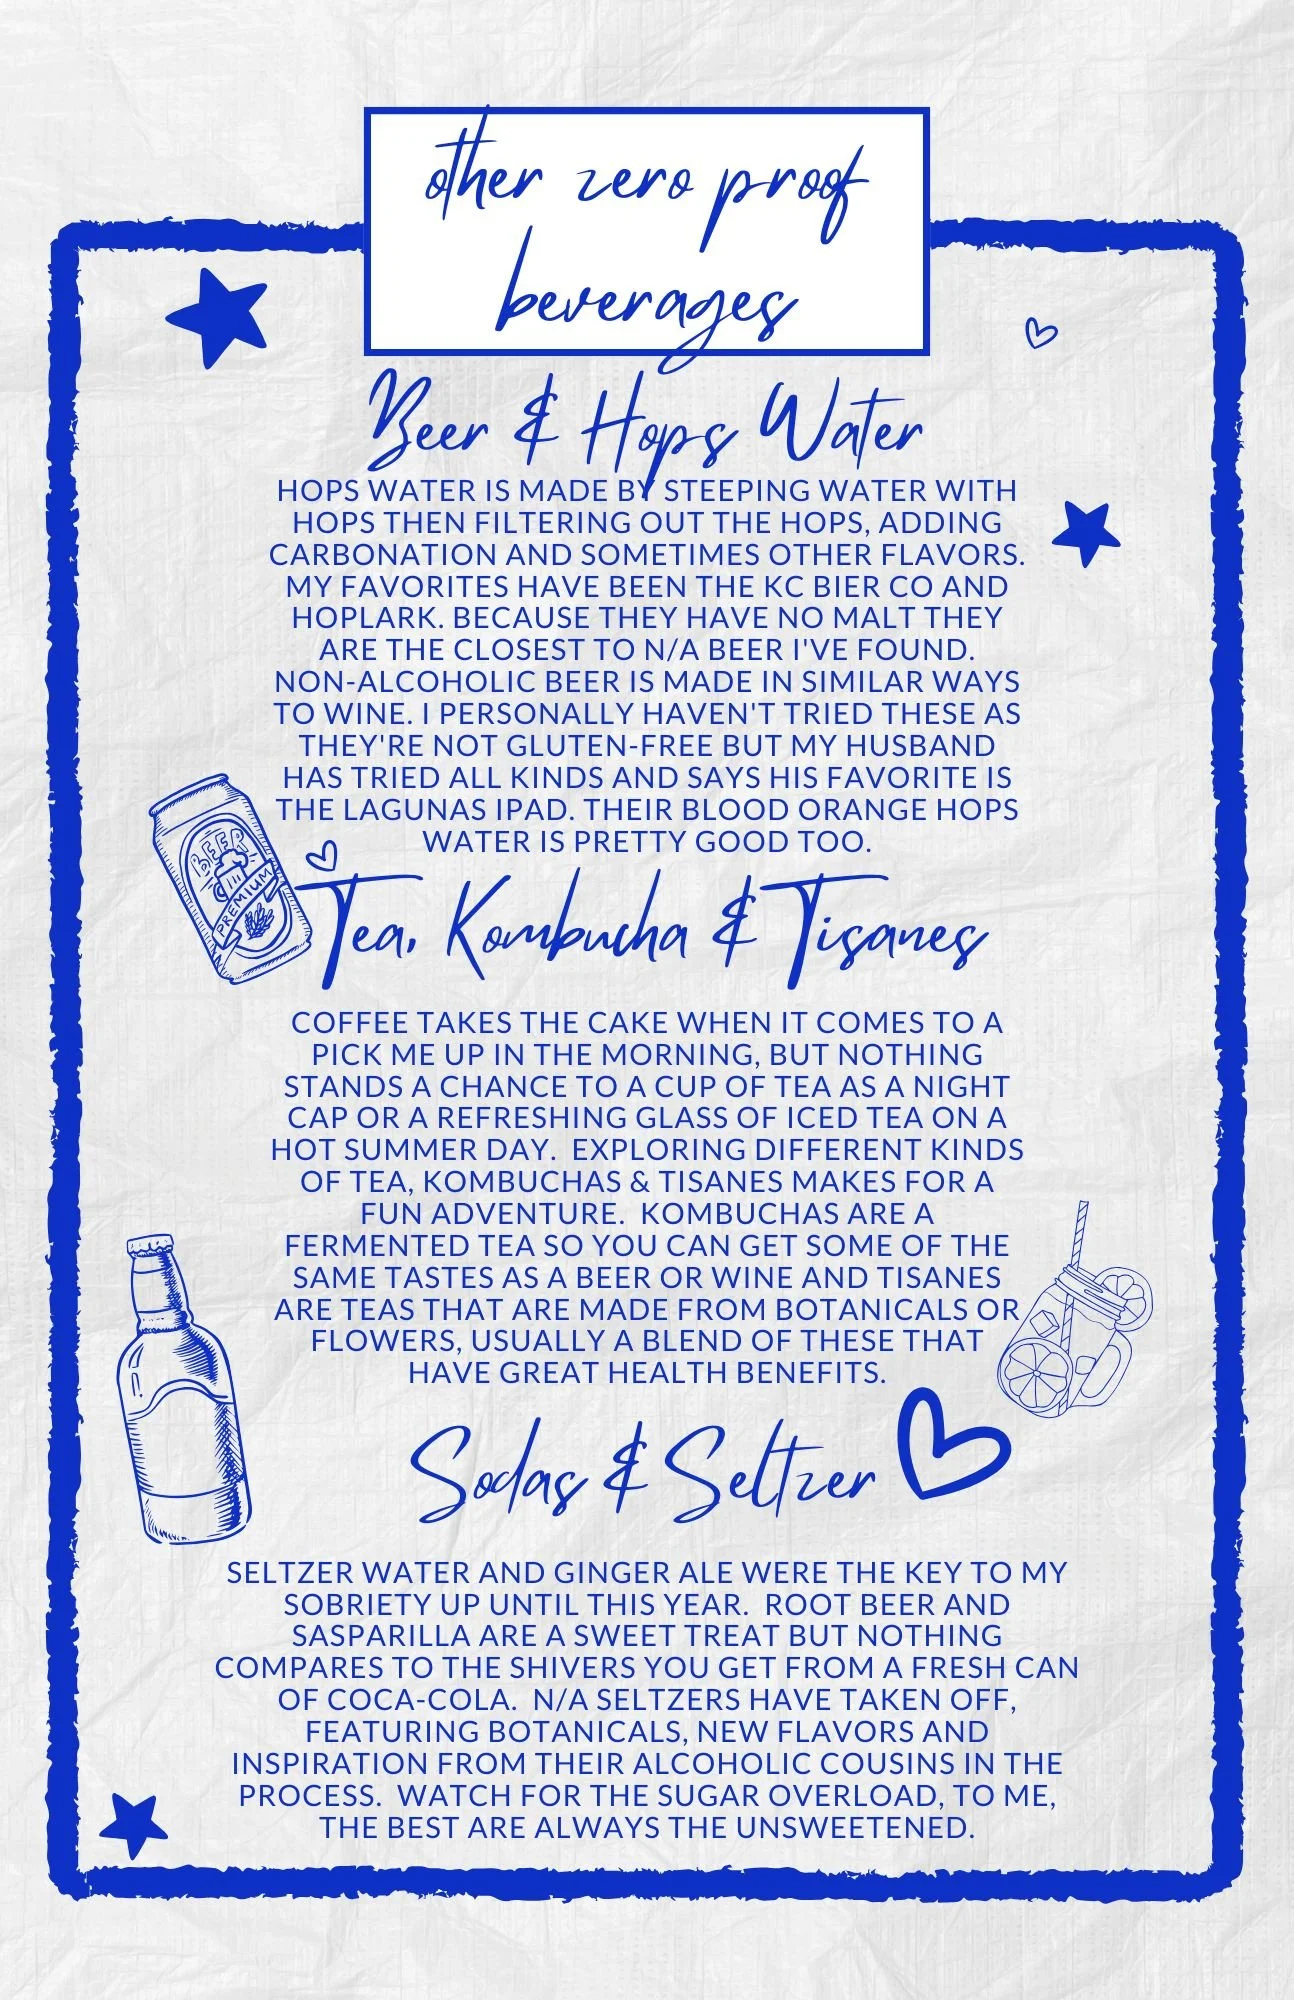 other zero proof
beverages
Beer & Hops Water
HOPS WATER IS MADE BY STEEPING WATER WITH
HOPS THEN FILTERING OUT THE HOPS, ADDING
CARBONATION AND SOMETIMES OTHER FLAVORS.
MY FAVORITES HAVE BEEN THE KC BIER CO AND
HOPLARK. BECAUSE THEY HAVE NO MALT THEY
ARE THE CLOSEST TO N/A BEER I'VE FOUND.
NON-ALCOHOLIC BEER IS MADE IN SIMILAR WAYS
TO WINE. I PERSONALLY HAVEN'T TRIED THESE AS
THEY'RE NOT GLUTEN-FREE BUT MY HUSBAND
HAS TRIED ALL KINDS AND SAYS HIS FAVORITE IS
THE LAGUNAS IPAD. THEIR BLOOD ORANGE HOPS
WATER IS PRETTY GOOD TOO.
BEER
PREMIUM
Tea, Kombucha & Tisanes
COFFEE TAKES THE CAKE WHEN IT COMES TO A
PICK ME UP IN THE MORNING, BUT NOTHING
STANDS A CHANCE TO A CUP OF TEA AS A NIGHT
CAP OR A REFRESHING GLASS OF ICED TEA ON A
HOT SUMMER DAY. EXPLORING DIFFERENT KINDS
OF TEA, KOMBUCHAS & TISANES MAKES FOR A
FUN ADVENTURE. KOMBUCHAS ARE A
FERMENTED TEA SO YOU CAN GET SOME OF THE
SAME TASTES AS A BEER OR WINE AND TISANES
ARE TEAS THAT ARE MADE FROM BOTANICALS OR
FLOWERS, USUALLY A BLEND OF THESE THAT
HAVE GREAT HEALTH BENEFITS.
Sodas & Seltzer
SELTZER WATER AND GINGER ALE WERE THE KEY TO MY
SOBRIETY UP UNTIL THIS YEAR. ROOT BEER AND
SASPARILLA ARE A SWEET TREAT BUT NOTHING
COMPARES TO THE SHIVERS YOU GET FROM A FRESH CAN
OF COCA-COLA. N/A SELTZERS HAVE TAKEN OFF,
FEATURING BOTANICALS, NEW FLAVORS AND
INSPIRATION FROM THEIR ALCOHOLIC COUSINS IN THE
PROCESS. WATCH FOR THE SUGAR OVERLOAD, TO ME,
THE BEST ARE ALWAYS THE UNSWEETENED.